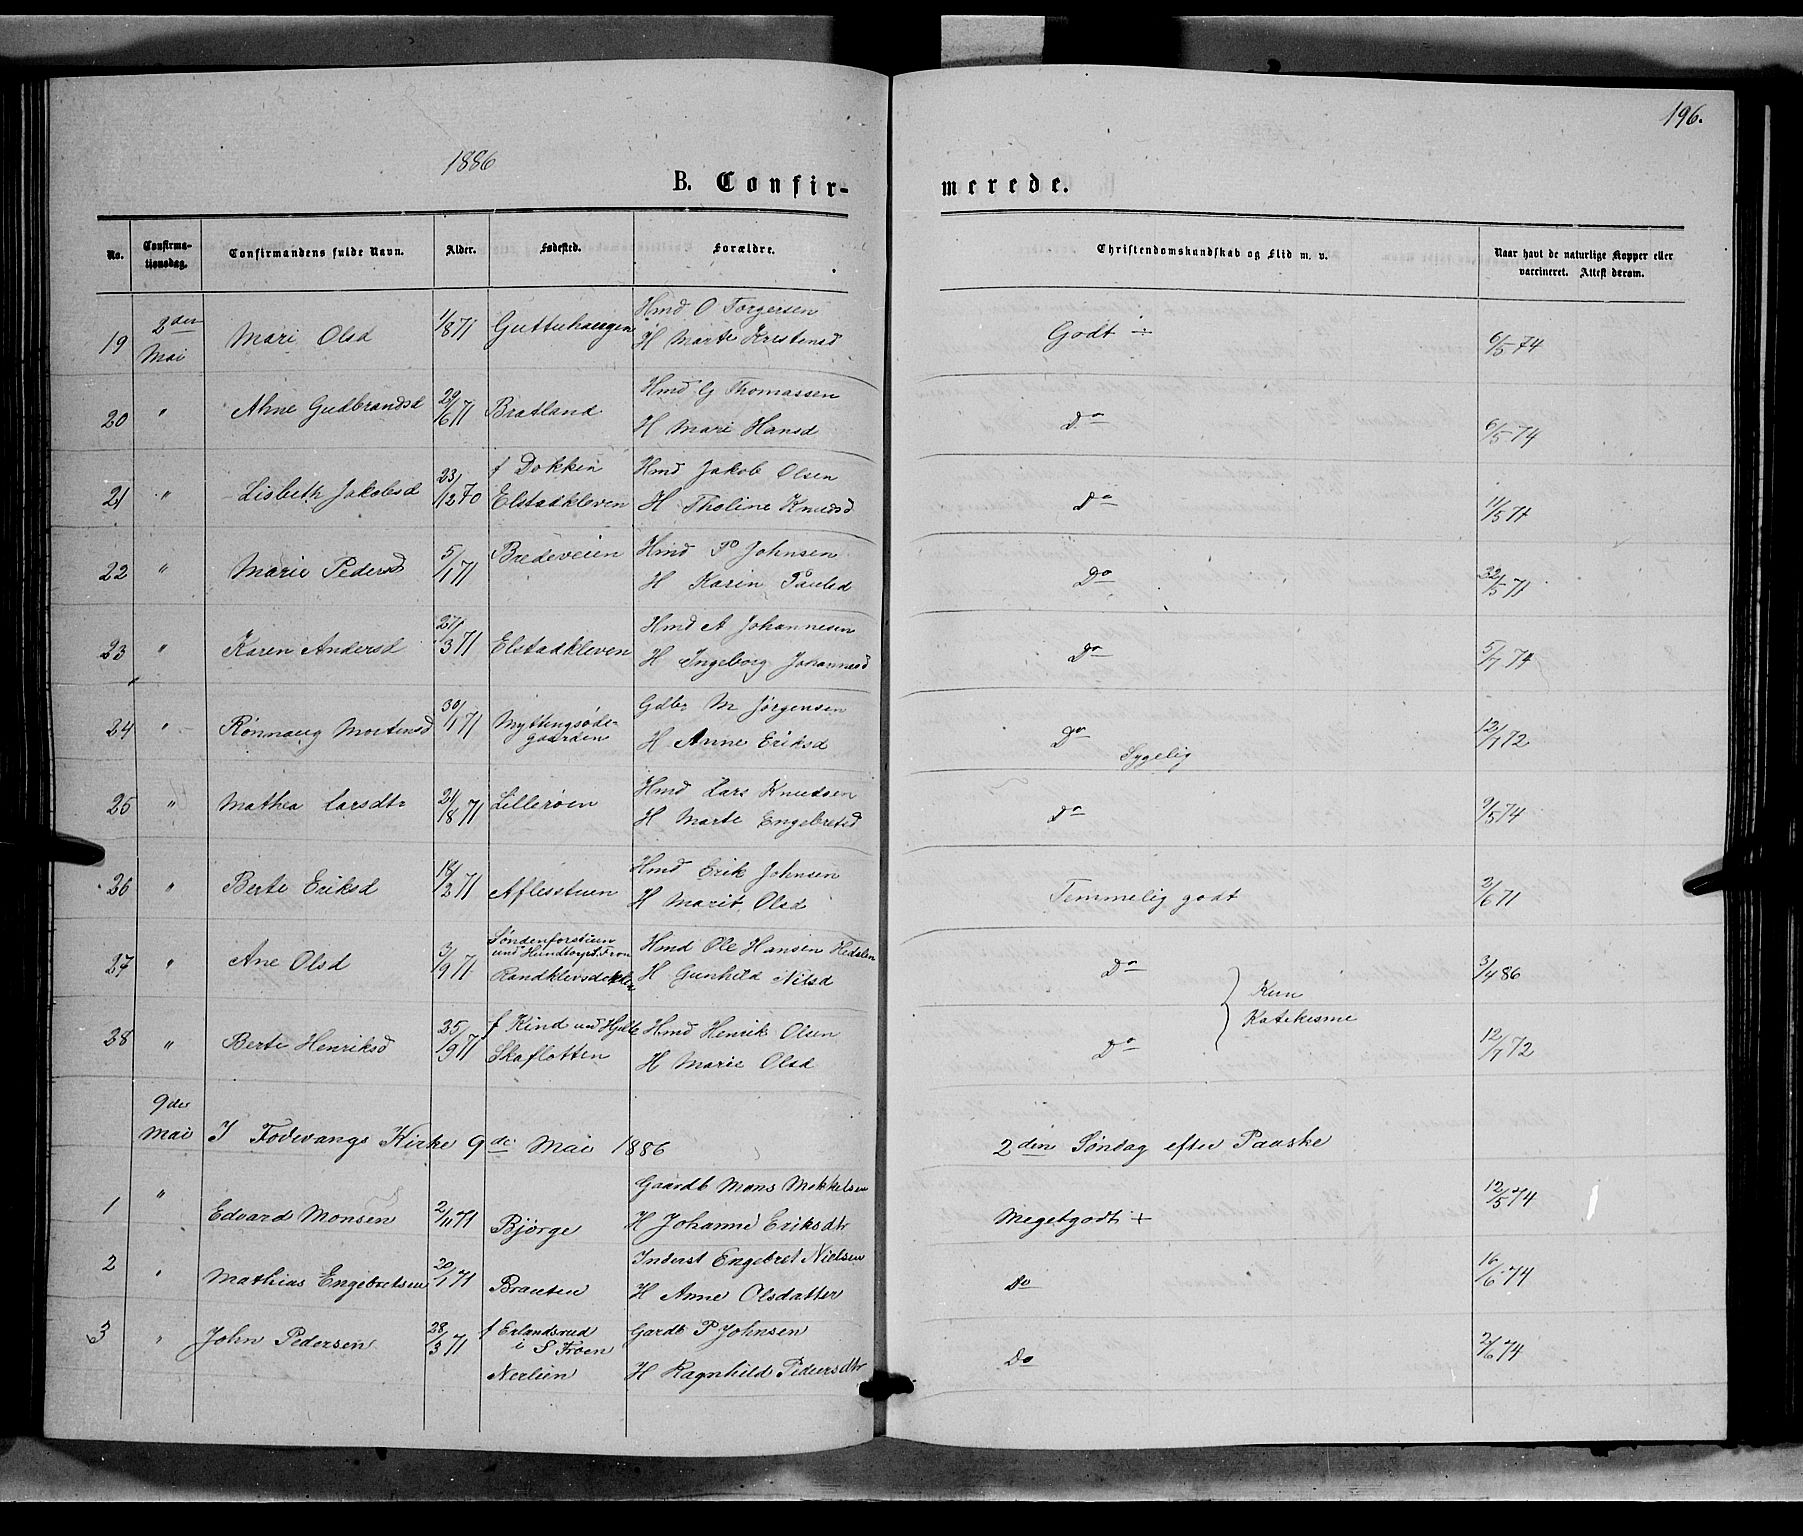 196.
1886
B. Confir-
merede.
No.
Confirma-
tionsdag.
Confirmandens fulde Navn.
Alder.
Fødested.
Forældre.
Christendomskundskab og Flid m. v.
Naar havt de naturlige Kopper eller
vaccineret. Attest derom.
19 2den Mai Mari Olsd 1/8 71 Guttuhaugen Hmd O Torgersen
H Marte Kristensd Godt ÷ 6/5 74
20 " Ahne Gudbrandsd 29/6 71 Bratland Hmd G Thomassen
H Mari Hansd Do 6/5 74
21 " Lisbeth Jakobsd 23/12 70 f Dokken Hmd Jakob Olsen
Elstadkleven H Tholine Knudsd Do 11/5 71
22 " Marie Pedersd 5/1 71 Bredeveien Hmd P Johnsen
H Karin Paulsd Do 22/5 71
23 " Karen Andersd 27/3 71 Elstadkleven Hmd A Johannesen
H Ingeborg Johannesd Do 5/7 74
24 " Rønnaug Mortensd 30/1 71 Myttingsøde- Gdbr M Jørgensen
gaarden H Anne Eriksd Do 12/7 72
Sygelig
25 " Mathea Larsdtr 21/8 71 Lillerøen Hmd Lars Knudsen
H Marte Engebretsd Do 9/5 74
26 " Berte Eriksd 18/2 71 Aflesstuen Hmd Erik Johnsen
H Marit Olsd Temmelig godt 2/6 71
27 " Ane Olsd 3/9 71 Søndenforstuen Hmd Ole Hansen Hedalen
und Hundtorp S. Fron
Randklevsdokken H Gunhild Nilsd Do 3/4 86
Kun
Katekisme
28 " Berte Henriksd 25/9 71 f Kind und Hjelle Hmd Henrik Olsen
Skaflotten H Marie Olsd Do 12/7 72
9de
Mai I Fodvangs Kirke 9de Mai 1886 2den Søndag efter Paaske
1 " Edvard Monsen 2/11 71 Bjørge Gaardb Mons Mokkelsen
H Johanne Eriksdtr Megetgodt + 12/5 74
2 " Mathias Engebretsen 20/1 71 Brauten Inderst Engebret Nielsen
H Anne Olsdatter Do 16/6 74
3 " John Pedersen 28/3 71 f Erlandsrud Gardb P Johnsen
i S Froen
Nerlien H Ragnhild Pedersdtr Do 2/6 74